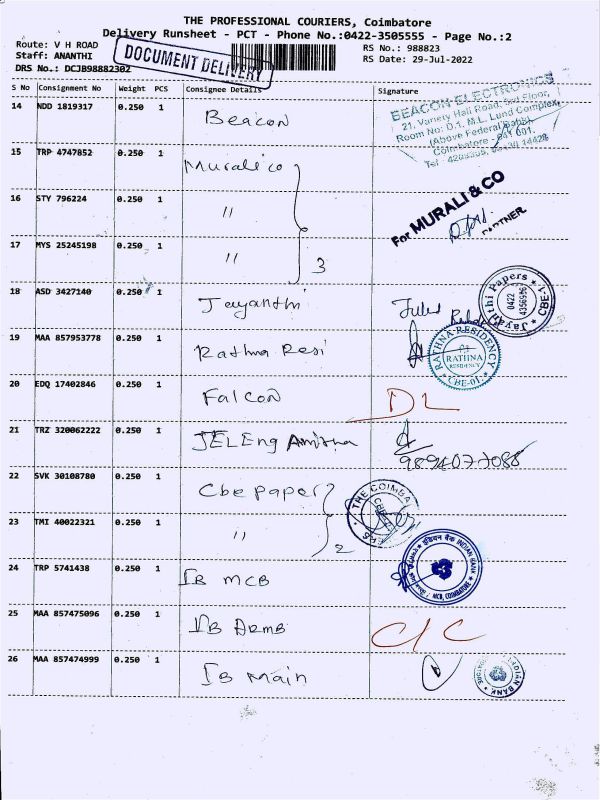 THE PROFESSIONAL COURIERS, Coimbatore
Delivery Runsheet - PCT - Phone No.:0422-3505555 - Page No.:2
Route: V H ROAD
RS No.: 988823
Staff: ANANTHI
RS Date: 29-Jul-2022
DRS No.: DCJB98882302
DOCUMENT DELIVERY
S No Consignment No Weight PCS Consignee Details Signature
14 NDD 1819317 0.250 1 Beacon
BEACON ELECTRONICS
21, Variety Hall Road, 3rd Floor,
Room No: D.1, M.L. Lund Complex,
(Above Federal Bank),
Coimbatore - 641 001.
15 TRP 4747852 0.250 1 Murali co
16 STY 796224 0.250 1 "
For MURALI & CO
PARTNER
17 MYS 25245198 0.250 1 "
3
18 ASD 3427140 0.250 1 Jayanthi
Jayanthi Papers
0422
4356986
CBE-1
19 MAA 857953778 0.250 1 Rathna Resi
RATHNA RESIDENCY
RATHNA
RESIDENCY
CBE-01
20 EDQ 17402846 0.250 1 Falcon DL
21 TRZ 320062222 0.250 1 JELEng Amitha
9894077088
22 SVK 30108780 0.250 1 Cbe paper
THE COIMBA
23 TMI 40022321 0.250 1 "
2
24 TRP 5741438 0.250 1 IB MCB
इंडियन बैंक INDIAN BANK
MCB, COIMBATORE
25 MAA 857475096 0.250 1 IB ARMB C/C
26 MAA 857474999 0.250 1 IB Main
INDIAN BANK